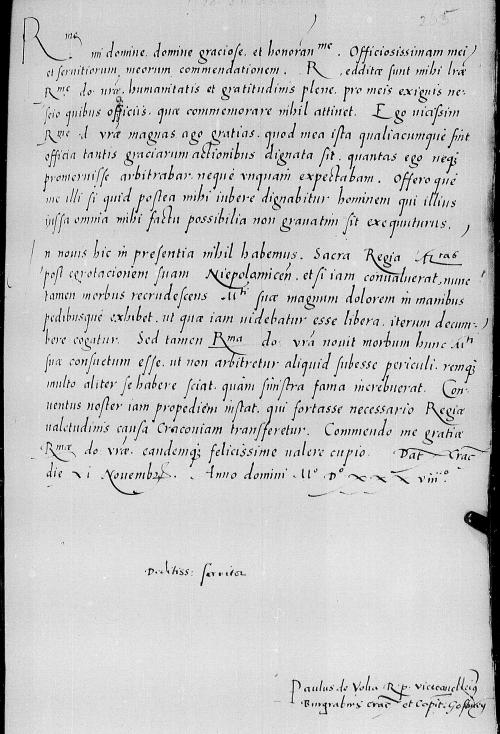 R me
mi domine. domine graciose. et honoran me. Officiosissimam mei
et servitiorum meorum commendationem. R. redditae sunt mihi lrae
R me do. vrae. humanitatis et gratitudinis plene. pro meis exiguis ne=
scio quibus officiis. quae commemorare nihil attinet. Ego vicissim
R me d vrae magnas ago gratias. quod mea ista qualiacumque sint
officia tantis graciarum actionibus dignata sit. quantas ego neq;
promeruisse arbitrabar. neque vnquam expectabam. Offero que
me illi si quid postea mihi iubere dignabitur hominem qui illius
iussa omnia mihi factu possibilia non gravatim sit exequuturus.
In novis hic in presentia nihil habemus. Sacra Regia M tas
post egrotacionem suam Niepolamicen. etsi iam convaluerat, nunc
tamen morbus recrudescens M ti suae magnum dolorem in manibus
pedibusque exhibet. ut quae iam videbatur esse libera. iterum decum=
bere cogatur. Sed tamen R ma do. vra novit morbum hunc M ti
suae consuetum esse. ut non arbitretur aliquid subesse periculi. remq;
multo aliter se habere sciat. quam sinistra fama increbuerat. Con=
ventus noster iam propediem instat. qui fortasse necessario Regiae
valetudinis causa Cracoviam transferetur. Commendo me gratiae
R mae do vrae. eandemq; felicissime valere cupio. Dat Crac
die xi Novembr. Anno domini M o D o xxxviii o.
Deditiss: servitor
Paulus de Volia R. p. vicecancellarius
Burgrabius Crac et Capit.